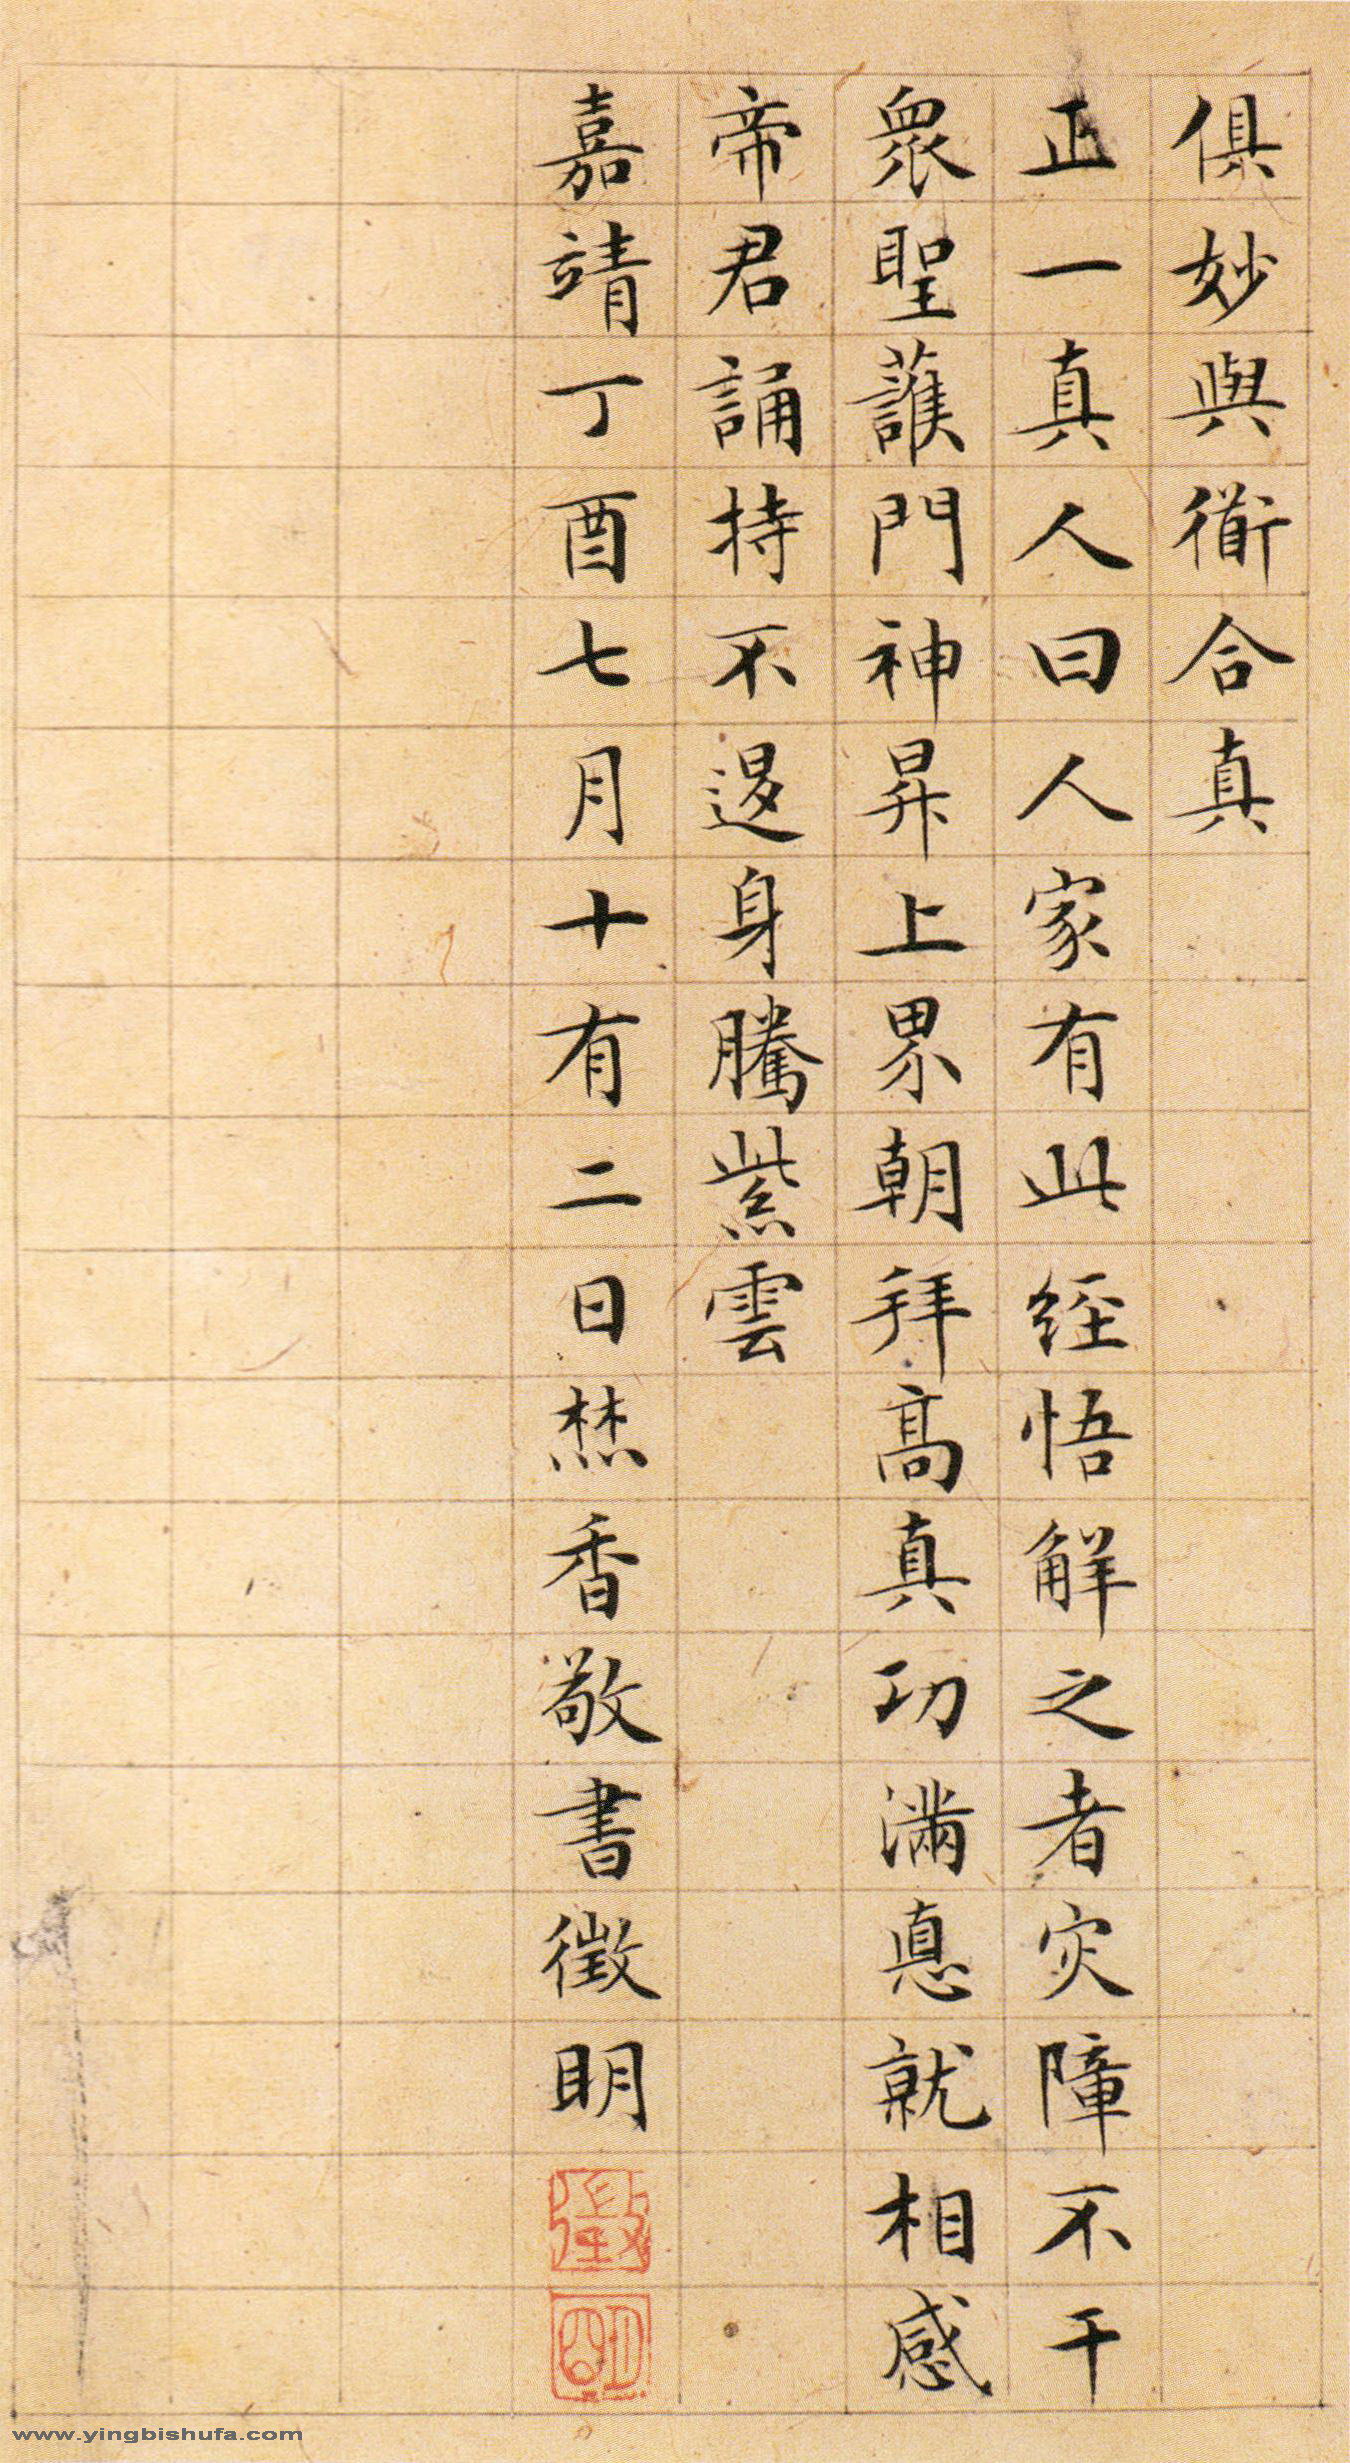 俱妙與衜合真
正一真人曰人家有此經悟解之者灾障不干
衆聖護門神昇上界朝拜髙真功滿悳就相感
帝君誦持不退身騰紫雲
嘉靖丁酉七月十有二日焚香敬書徵明
徵
明
www.yingbishufa.com